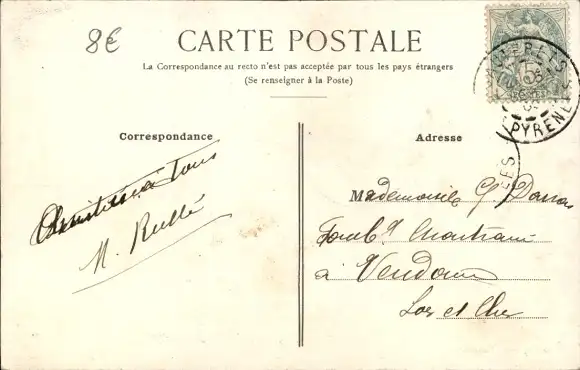 8€
CARTE POSTALE
La Correspondance au recto n'est pas acceptée par tous les pays étrangers
(Se renseigner à la Poste)
Correspondance
Adresse
à Tous
M. Rullé
Mademoiselle G.
Faub.g Chartrain
à Vendôme
Loir et Cher
PYRENEES